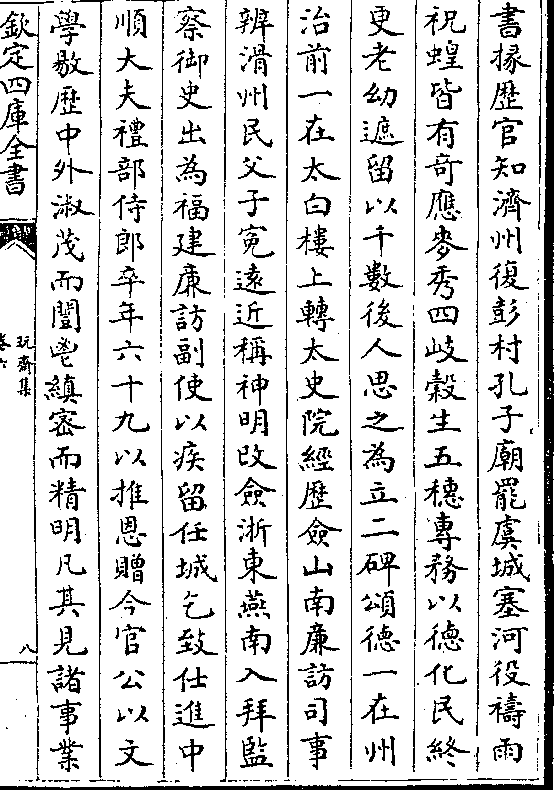 書掾歴官知濟州復彭村孔子廟罷虞城塞河役禱雨
祝蝗皆有竒應麥秀四岐穀生五穗專務以德化民終
更老幼遮留以千數後人思之為立二碑頌德一在州
治前一在太白樓上轉太史院經歷僉山南廉訪司事
辨滑州民父子寃遠近稱神明改僉浙東燕南入拜監
察御史出為福建廉訪副使以疾留任城乞致仕進中
順大夫禮部侍郎卒年六十九以推恩贈今官公以文
學敭歴中外淑茂而誾鬯縝宻而精明凡其見諸事業
欽定四庫全書
玩齋集
卷六
八